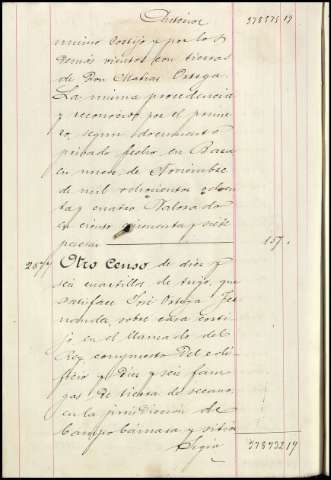 Anterior 378575 19
mismo cortijo y por los
demás vientos con tierras
de Don Matías Ortega.
La misma procedencia
y reconocido por el prime-
ro, segun documento
privado fecho en Baza
en nueve de Noviembre
de mil ochocientos ochen-
ta y cuatro. Valorado
en ciento cincuenta y siete
pesetas 157.
287 Otro censo de diez y
seis cuartillas de trigo, que
satisface José Ortega
sobre casa corti-
jo en el llamado del
Rey compuesto del edi-
ficio y diez y seis fane-
gas de tierra de secano
en la jurisdiccion de
Campo Cámara y sitio
Sigue 378732 19